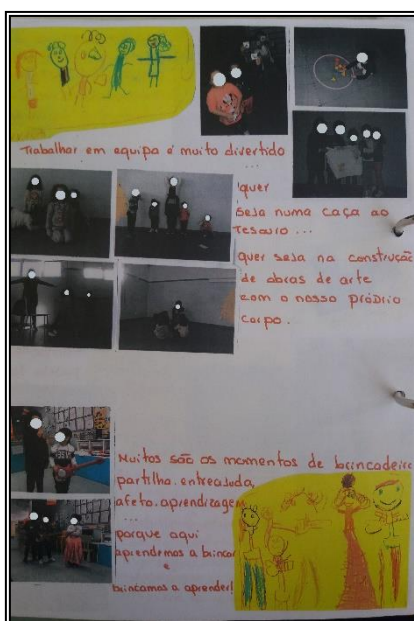 Trabalhar em equipa é muito divertido
...
quer
seja numa caça ao
Tesouro ...
quer seja na construção
de obras de arte
com o nosso próprio
corpo.
Muitos são os momentos de brincadeira
partilha, entreajuda,
afeto, aprendizagem
...
porque aqui
aprendemos a brincar
e
brincamos a aprender!